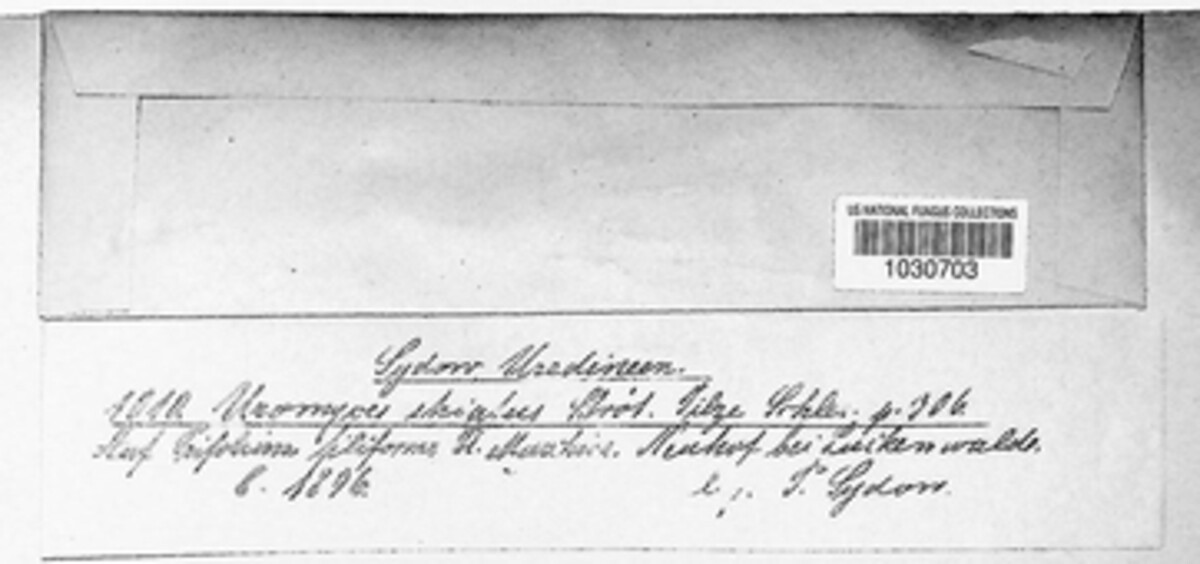 US NATIONAL FUNGUS COLLECTIONS
1030703
Sydow, Uredineen.
1010 Uromyces striatus Schröt. Pilze Schles. p. 306.
Auf Trifolium filiforme Neuhof bei Luckenwalde.
6. 1896. P. Sydow.